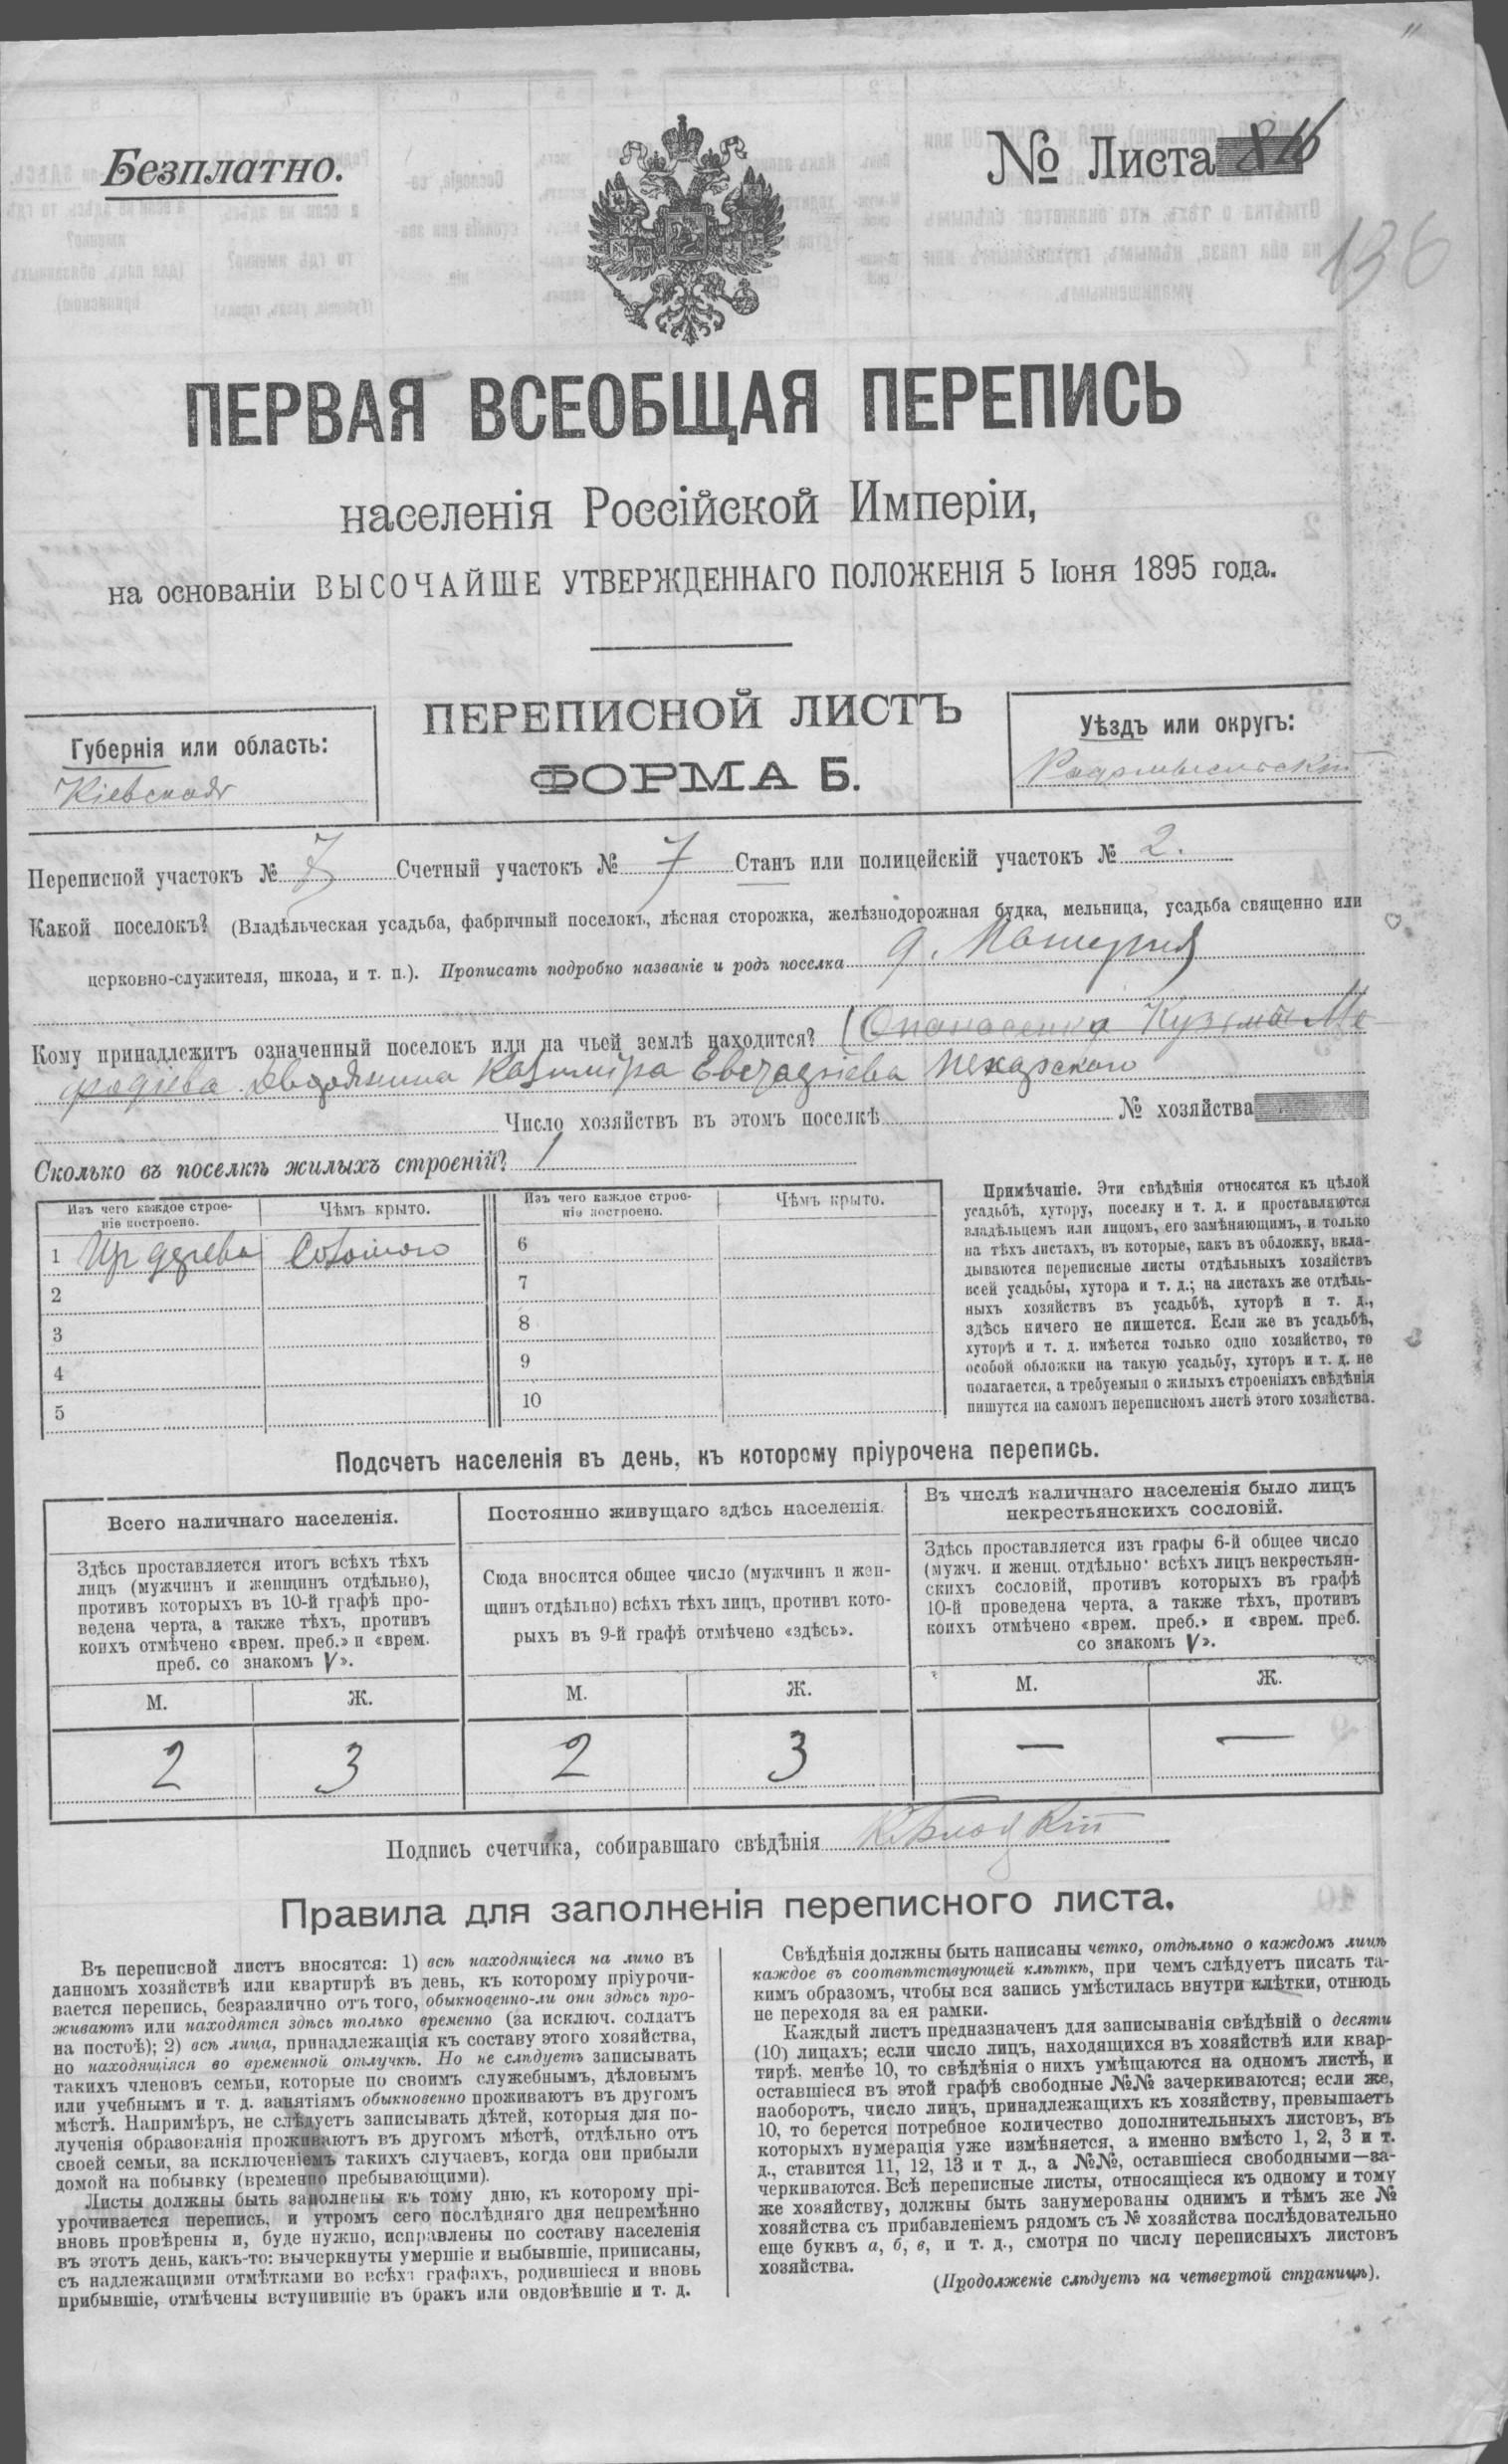 Безплатно.
№ Листа
136
ПЕРВАЯ ВСЕОБЩАЯ ПЕРЕПИСЬ
населенія Россійской Имперіи,
на основаніи ВЫСОЧАЙШЕ УТВЕРЖДЕННАГО ПОЛОЖЕНІЯ 5 Іюня 1895 года.
Губернія или область:
Кіевская
ПЕРЕПИСНОЙ ЛИСТЪ
ФОРМА Б.
Уѣздъ или округъ:
Радомысльскій
Переписной участокъ № Счетный участокъ № 7 Станъ или полицейскій участокъ № 2.
Какой поселокъ? (Владѣльческая усадьба, фабричный поселокъ, лѣсная сторожка, желѣзнодорожная будка, мельница, усадьба священно или
церковно-служителя, школа, и т. п.). Прописать подробно названіе и родъ поселка д.
Кому принадлежитъ означенный поселокъ или на чьей землѣ находится? (Опанасенка Кузьма Ме-
фодіева Дворянина Казимира Пекарского
Число хозяйствъ въ этомъ поселкѣ № хозяйства
Сколько въ поселкѣ жилыхъ строеній? 1
Изъ чего каждое строе-
ніе построено.
Чѣмъ крыто.
Изъ чего каждое строе-
ніе построено.
Чѣмъ крыто.
1 Изъ дерева Соломою
6
2
7
3
8
4
9
5
10
Примѣчаніе. Эти свѣдѣнія относятся къ цѣлой
усадьбѣ, хутору, поселку и т. д. и проставляются
владѣльцемъ или лицомъ, его замѣняющимъ, и только
на тѣхъ листахъ, въ которые, какъ въ обложку, вкла-
дываются переписные листы отдѣльныхъ хозяйствъ
всей усадьбы, хутора и т. д.; на листахъ же отдѣль-
ныхъ хозяйствъ въ усадьбѣ, хуторѣ и т. д.,
здѣсь ничего не пишется. Если же въ усадьбѣ,
хуторѣ и т. д. имѣется только одно хозяйство, то
особой обложки на такую усадьбу, хуторъ и т. д. не
полагается, а требуемыя о жилыхъ строеніяхъ свѣдѣнія
пишутся на самомъ переписномъ листѣ этого хозяйства.
Подсчетъ населенія въ день, къ которому пріурочена перепись.
Всего наличнаго населенія.
Здѣсь проставляется итогъ всѣхъ тѣхъ
лицъ (мужчинъ и женщинъ отдѣльно),
противъ которыхъ въ 10-й графѣ про-
ведена черта, а также тѣхъ, противъ
коихъ отмѣчено «врем. преб.» и «врем.
преб. со знакомъ V».
М. Ж.
2 3
Постоянно живущаго здѣсь населенія.
Сюда вносится общее число (мужчинъ и жен-
щинъ отдѣльно) всѣхъ тѣхъ лицъ, противъ кото-
рыхъ въ 9-й графѣ отмѣчено «здѣсь».
М. Ж.
2 3
Въ числѣ наличнаго населенія было лицъ
некрестьянскихъ сословій.
Здѣсь проставляется изъ графы 6-й общее число
(мужч. и женщ. отдѣльно) всѣхъ лицъ некрестьян-
скихъ сословій, противъ которыхъ въ графѣ
10-й проведена черта, а также тѣхъ, противъ
коихъ отмѣчено «врем. преб.» и «врем. преб.
со знакомъ V».
М. Ж.
— —
Подпись счетчика, собиравшаго свѣдѣнія
Правила для заполненія переписного листа.
Въ переписной листъ вносятся: 1) всѣ находящіеся на лицо въ
данномъ хозяйствѣ или квартирѣ въ день, къ которому пріурочи-
вается перепись, безразлично отъ того, обыкновенно-ли они здѣсь про-
живаютъ или находятся здѣсь только временно (за исключ. солдатъ
на постоѣ); 2) всѣ лица, принадлежащія къ составу этого хозяйства,
но находящіяся во временной отлучкѣ. Но не слѣдуетъ записывать
такихъ членовъ семьи, которые по своимъ служебнымъ, дѣловымъ
или учебнымъ и т. д. занятіямъ обыкновенно проживаютъ въ другомъ
мѣстѣ. Напримѣръ, не слѣдуетъ записывать дѣтей, которыя для по-
лученія образованія проживаютъ въ другомъ мѣстѣ, отдѣльно отъ
своей семьи, за исключеніемъ такихъ случаевъ, когда они прибыли
домой на побывку (временно пребывающими).
Листы должны быть заполнены къ тому дню, къ которому прі-
урочивается перепись, и утромъ сего послѣдняго дня непремѣнно
вновь провѣрены и, буде нужно, исправлены по составу населенія
въ этотъ день, какъ-то: вычеркнуты умершіе и выбывшіе, приписаны,
съ надлежащими отмѣтками во всѣхъ графахъ, родившіеся и вновь
прибывшіе, отмѣчены вступившіе въ бракъ или овдовѣвшіе и т. д.
Свѣдѣнія должны быть написаны четко, отдѣльно о каждомъ лицѣ
каждое въ соотвѣтствующей клѣткѣ, при чемъ слѣдуетъ писать та-
кимъ образомъ, чтобы вся запись умѣстилась внутри клѣтки, отнюдь
не переходя за ея рамки.
Каждый листъ предназначенъ для записыванія свѣдѣній о десяти
(10) лицахъ; если число лицъ, находящихся въ хозяйствѣ или квар-
тирѣ, менѣе 10, то свѣдѣнія о нихъ умѣщаются на одномъ листѣ, и
оставшіеся въ этой графѣ свободные №№ зачеркиваются; если же,
наоборотъ, число лицъ, принадлежащихъ къ хозяйству, превышаетъ
10, то берется потребное количество дополнительныхъ листовъ, въ
которыхъ нумерація уже измѣняется, а именно вмѣсто 1, 2, 3 и т.
д., ставится 11, 12, 13 и т д., а №№, оставшіеся свободными—за-
черкиваются. Всѣ переписные листы, относящіеся къ одному и тому
же хозяйству, должны быть занумерованы однимъ и тѣмъ же №
хозяйства съ прибавленіемъ рядомъ съ № хозяйства послѣдовательно
еще буквъ а, б, в, и т. д., смотря по числу переписныхъ листовъ
хозяйства.
(Продолженіе слѣдуетъ на четвертой страницѣ).